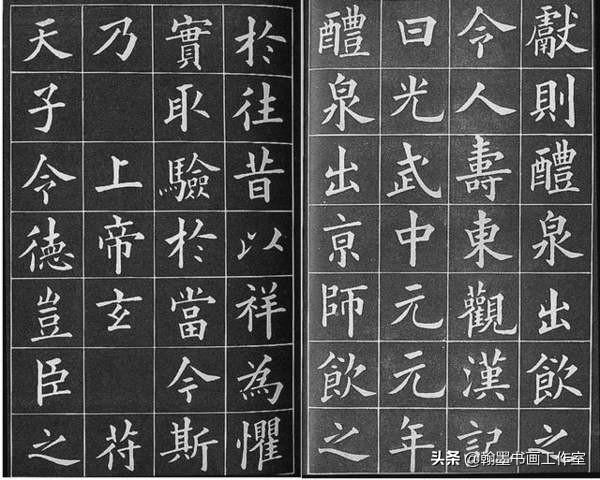 獻則醴泉出飲之
令人壽東觀漢記
曰光武中元元年
醴泉出京師飲之
於往昔以祥為懼
實取驗於當今斯
乃 上帝玄 符
天子令德豈臣之
头条 @翰墨书画工作室